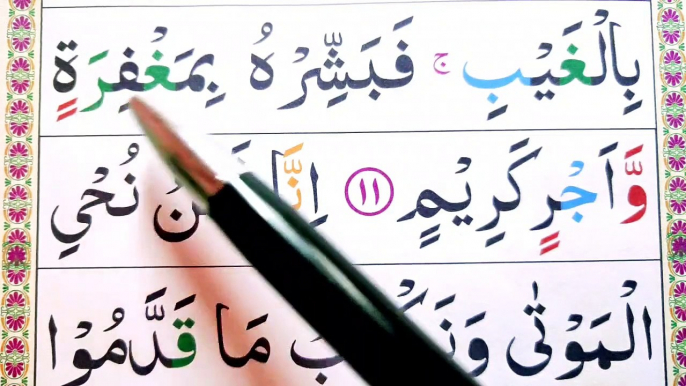 بِالْغَيْبِ ۚ فَبَشِّرْهُ بِمَغْفِرَةٍ
وَّاَجْرٍ كَرِيْمٍ ١١ اِنَّا نُحْيِ
الْمَوْتٰى مَا قَدَّمُوْا